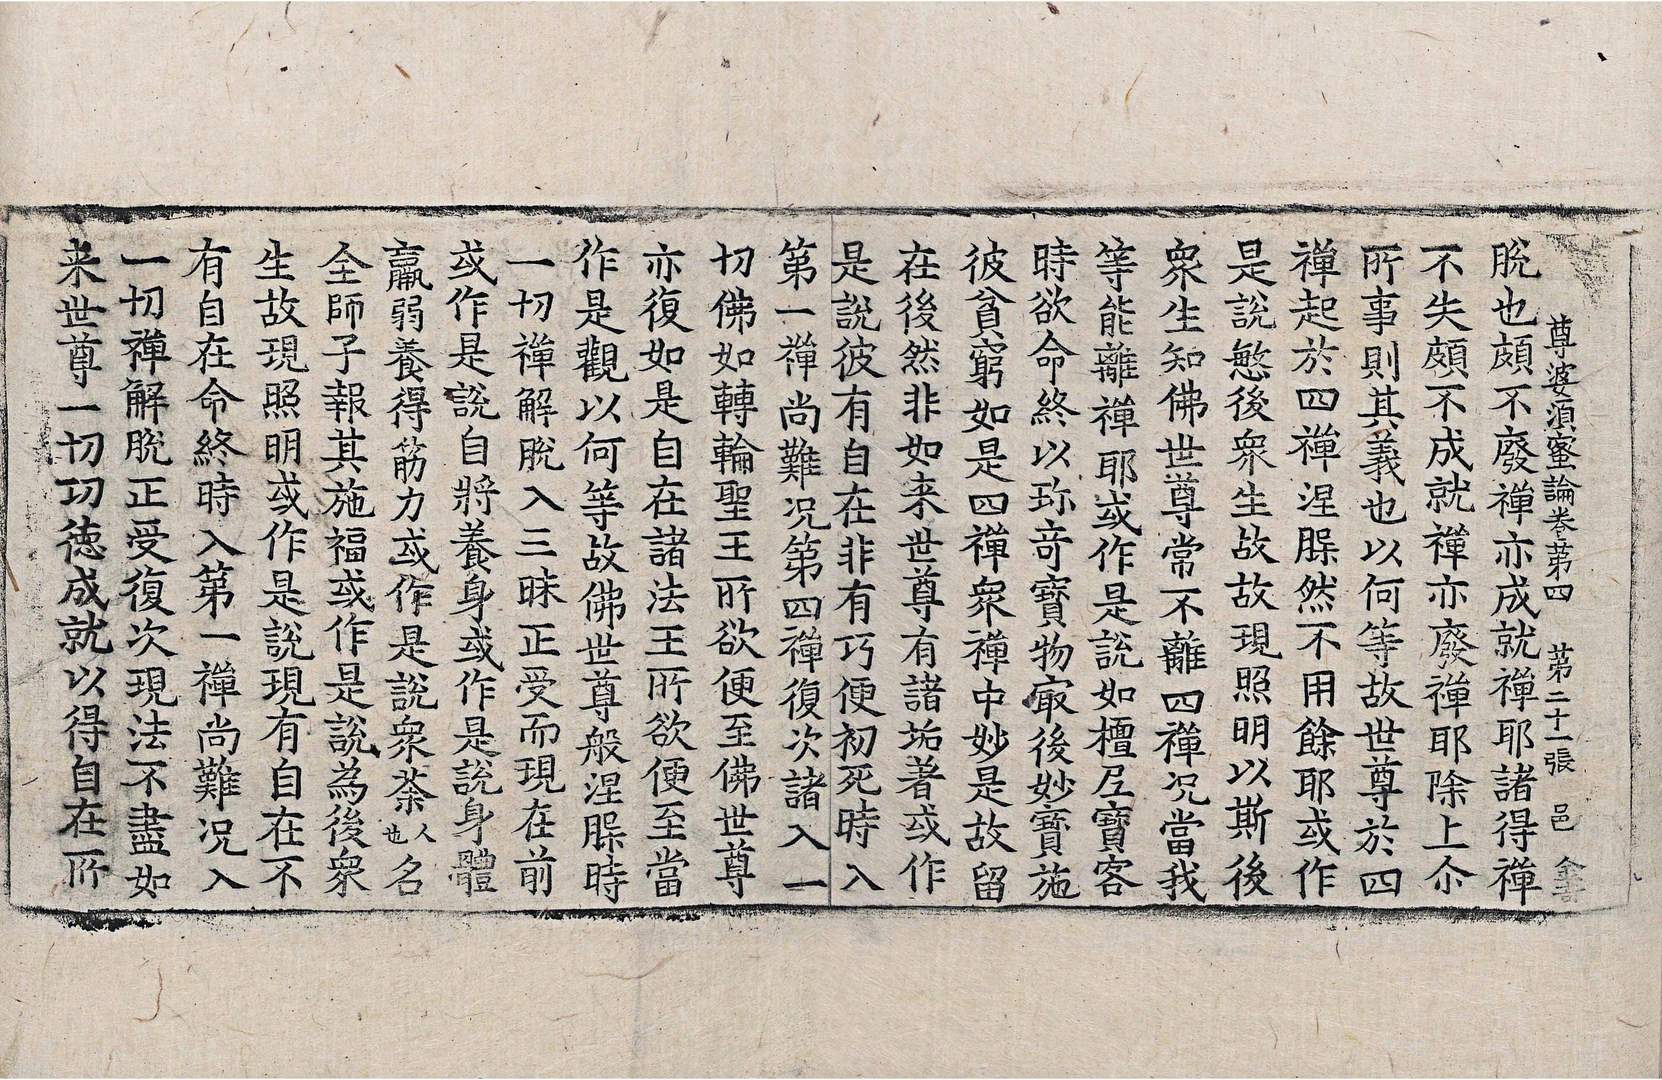 尊婆須蜜論卷第四　第二十一張　邑
脫也頗不廢禪亦成就禪耶諸得禪
不失頗不成就禪亦廢禪耶除上尒
所事則其義也以何等故世尊於四
禪起於四禪涅槃然不用餘耶或作
是說愍後衆生故故現照明以斯後
衆生知佛世尊常不離四禪况當我
等能離禪耶或作是說如檀越寶客
時欲命終以珎竒寶物㝡後妙寶施
彼貧窮如是四禪衆禪中妙是故留
在後然非如来世尊有諸垢著或作
是說彼有自在非有巧便初死時入
第一禪尚難况第四禪復次諸入一
切佛如轉輪聖王所欲便至佛世尊
亦復如是自在諸法王所欲便至當
作是觀以何等故佛世尊般涅槃時
一切禪解脫入三昧正受而現在前
或作是說自將養身或作是說身體
羸弱養得筋力或作是說衆荼人也名
全師子報其施福或作是說為後衆
生故現照明或作是說現有自在不
有自在命終時入第一禪尚難况入
一切禪解脫正受復次現法不盡如
来世尊一切功徳成就以得自在所